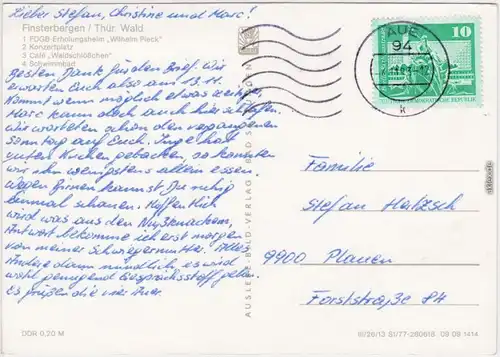 Lieber Stefan, Christine und Marc!
Finsterbergen / Thür. Wald
1 FDGB-Erholungsheim „Wilhelm Pieck"
2 Konzertplatz
3 Café „Waldschlößchen"
4 Schwimmbad
Besten Dank für den Brief. Wir
erwarten Euch also am 13.11.
Kommt wenn möglich etwas zeitiger
Marc kann doch auch hier schlafen.
Wir warteten schon den vergangenen
Sonntag auf Euch. Inge hat
guten Kuchen gebacken, so konnten
wir ihn wenigstens allein essen.
Wegen Firnen kannst Du ruhig
einmal schauen. Hoffentlich
wird was aus den Nußknackern,
Antwort bekomme ich erst morgen
von meiner Schwiegermutter. Alles
Andere dann mündlich, es wird
wohl genügend Gesprächsstoff geben.
Es grüßen die vier Auer.
DDR 0,20 M
AUSLESE-BILD-VERLAG · BAD
AUE
94
k
10
DEMOKRATISCHE REPUBLIK
Familie
Stefan Hatzsch
9900 Plauen
Forststraße 84
III/26/13 St/77-260618 09 09 1414